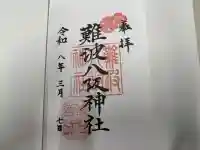 奉拝
難波八阪神社
令和八年三月七日